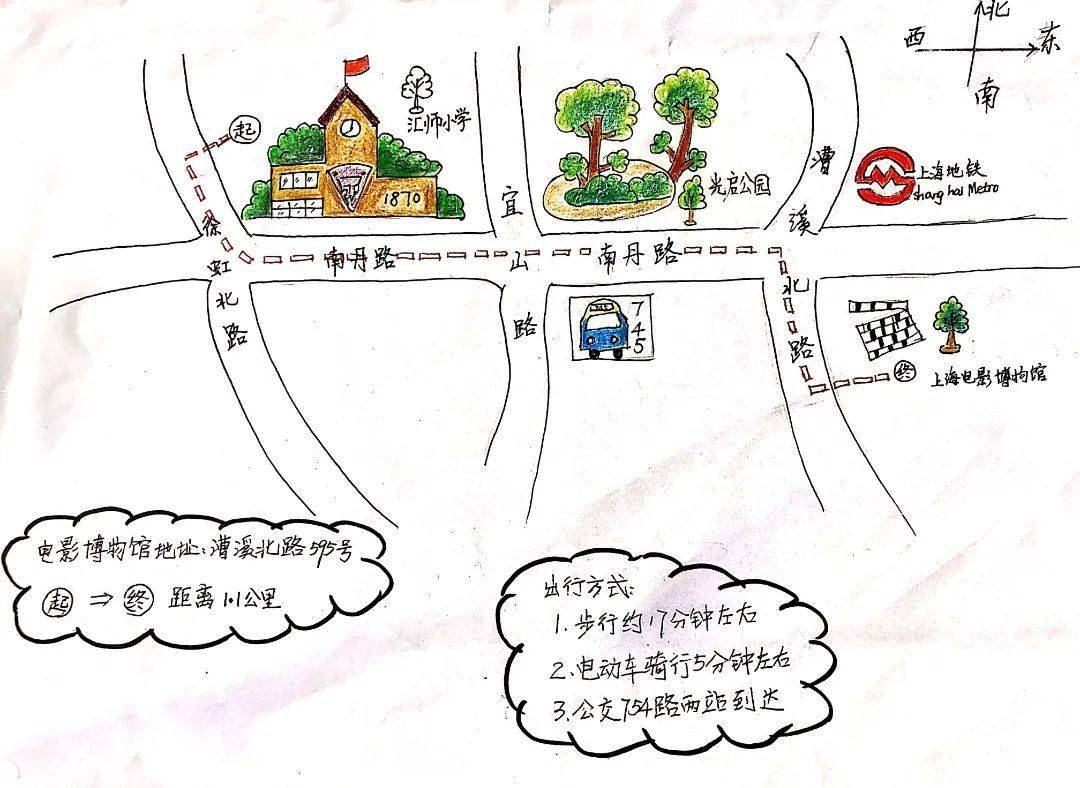 北
西 东
南
起
汇师小学
1870
光启公园
上海地铁
shanghai Metro
徐虹北路
南丹路
宜山路
南丹路
漕溪北路
745
终
上海电影博物馆
电影博物馆地址:漕溪北路595号
起 ⇒ 终 距离1.1公里
出行方式:
1.步行约17分钟左右
2.电动车骑行5分钟左右
3.公交754路两站到达